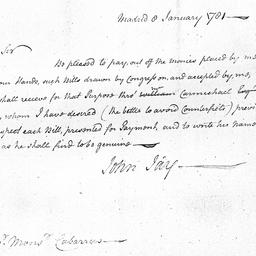 Madrid 8 January 1781
Sir
Be pleased to pay, out of the monies placed by me
our Hands, such Bills drawn by Congress on, and accepted by, me,
shall receive for that Purpose thro' William Carmichael Esqr
whom I have desired (the better to avoid Counterfeits) previ
spect each Bill, presented for Payment, and to write his Name
as he shall find to be genuine
John Jay
Monsr. Cabarrus